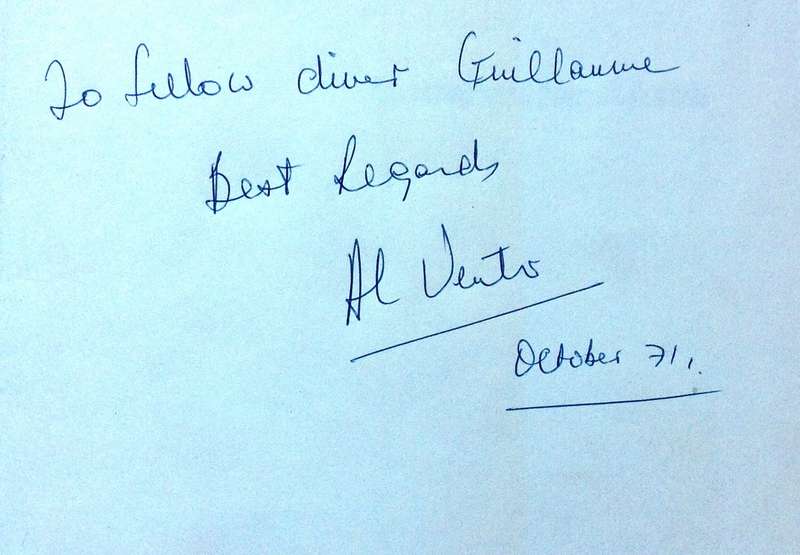 To fellow diver Guillaume
Best Regards
Al Vento
October 71.